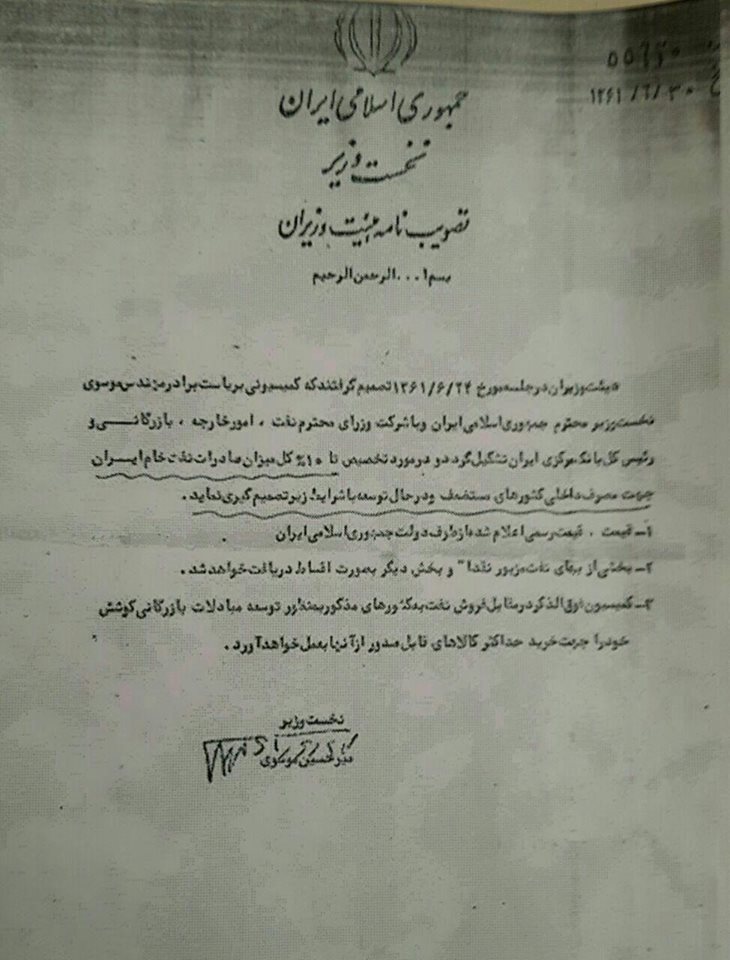 ۵۵۶۶۰
۱۳۶۱/۶/۳۰
جمهوری اسلامی ایران
نخست وزیر
تصویب نامه هیئت وزیران
بسم ا... الرحمن الرحیم
هیئت وزیران در جلسه مورخ ۱۳۶۱/۶/۲۴ تصمیم گرفتند که کمیسیونی بریاست برادر مهندس موسوی
نخست وزیر محترم جمهوری اسلامی ایران وبا شرکت وزرای محترم نفت ، امور خارجه ، بازرگانــی و
رئیس کل بانک مرکزی ایران تشکیل گردد و در مورد تخصیص تا ۱۰% کل میزان صادرات نفت خام ایــران
جهت مصرف داخلی کشورهای مستضعف ودر حال توسعه با شرایط زیر تصمیم گیری نماید .
۱ـ قیمت ، قیمت رسمی اعلام شده از طرف دولت جمهوری اسلامی ایران
۲ـ بخشی از بهای نفت مزبور نقدا" و بخش دیگر بصورت اقساط دریافت خواهد شد .
۳ـ کمیسیون فوق الذکر در مقابل فروش نفت به کشورهای مذکور بمنظور توسعه مبادلات بازرگانی کوشش
خود را جهت خرید حداکثر کالاهای قابل صدور از آنها بعمل خواهد آورد .
نخست وزیر
میرحسین موسوی